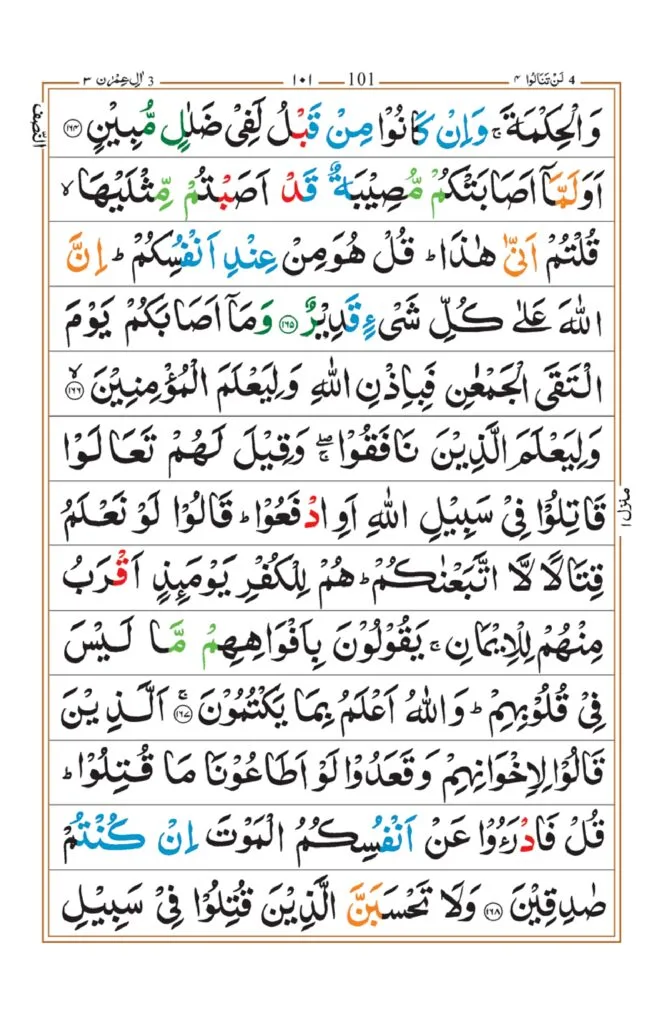 4 لَنْ تَنَالُوا ٤ 101 ١٠١ 3 اٰلِ عِمْرٰن ٣
النّصف
وَالْحِكْمَةَ ۚ وَاِنْ كَانُوْا مِنْ قَبْلُ لَفِيْ ضَلٰلٍ مُّبِيْنٍ ۝۱۶۴
اَوَلَمَّاۤ اَصَابَتْكُمْ مُّصِيْبَةٌ قَدْ اَصَبْتُمْ مِّثْلَيْهَا ۙ
قُلْتُمْ اَنّٰى هٰذَا ؕ قُلْ هُوَ مِنْ عِنْدِ اَنْفُسِكُمْ ؕ اِنَّ
اللّٰهَ عَلٰى كُلِّ شَيْءٍ قَدِيْرٌ ۝۱۶۵ وَمَاۤ اَصَابَكُمْ يَوْمَ
الْتَقَى الْجَمْعٰنِ فَبِاِذْنِ اللّٰهِ وَلِيَعْلَمَ الْمُؤْمِنِيْنَ ۙ ۝۱۶۶
وَلِيَعْلَمَ الَّذِيْنَ نَافَقُوْا ۖۚ وَقِيْلَ لَهُمْ تَعَالَوْا
قَاتِلُوْا فِيْ سَبِيْلِ اللّٰهِ اَوِ ادْفَعُوْا ؕ قَالُوْا لَوْ نَعْلَمُ
قِتَالًا لَّا اتَّبَعْنٰكُمْ ؕ هُمْ لِلْكُفْرِ يَوْمَئِذٍ اَقْرَبُ
مِنْهُمْ لِلْاِيْمَانِ ۚ يَقُوْلُوْنَ بِاَفْوَاهِهِمْ مَّا لَيْسَ
فِيْ قُلُوْبِهِمْ ؕ وَاللّٰهُ اَعْلَمُ بِمَا يَكْتُمُوْنَ ۚ ۝۱۶۷ اَلَّذِيْنَ
قَالُوْا لِاِخْوَانِهِمْ وَقَعَدُوْا لَوْ اَطَاعُوْنَا مَا قُتِلُوْا ؕ
قُلْ فَادْرَءُوْا عَنْ اَنْفُسِكُمُ الْمَوْتَ اِنْ كُنْتُمْ
صٰدِقِيْنَ ۝۱۶۸ وَلَا تَحْسَبَنَّ الَّذِيْنَ قُتِلُوْا فِيْ سَبِيْلِ
منزل ۱